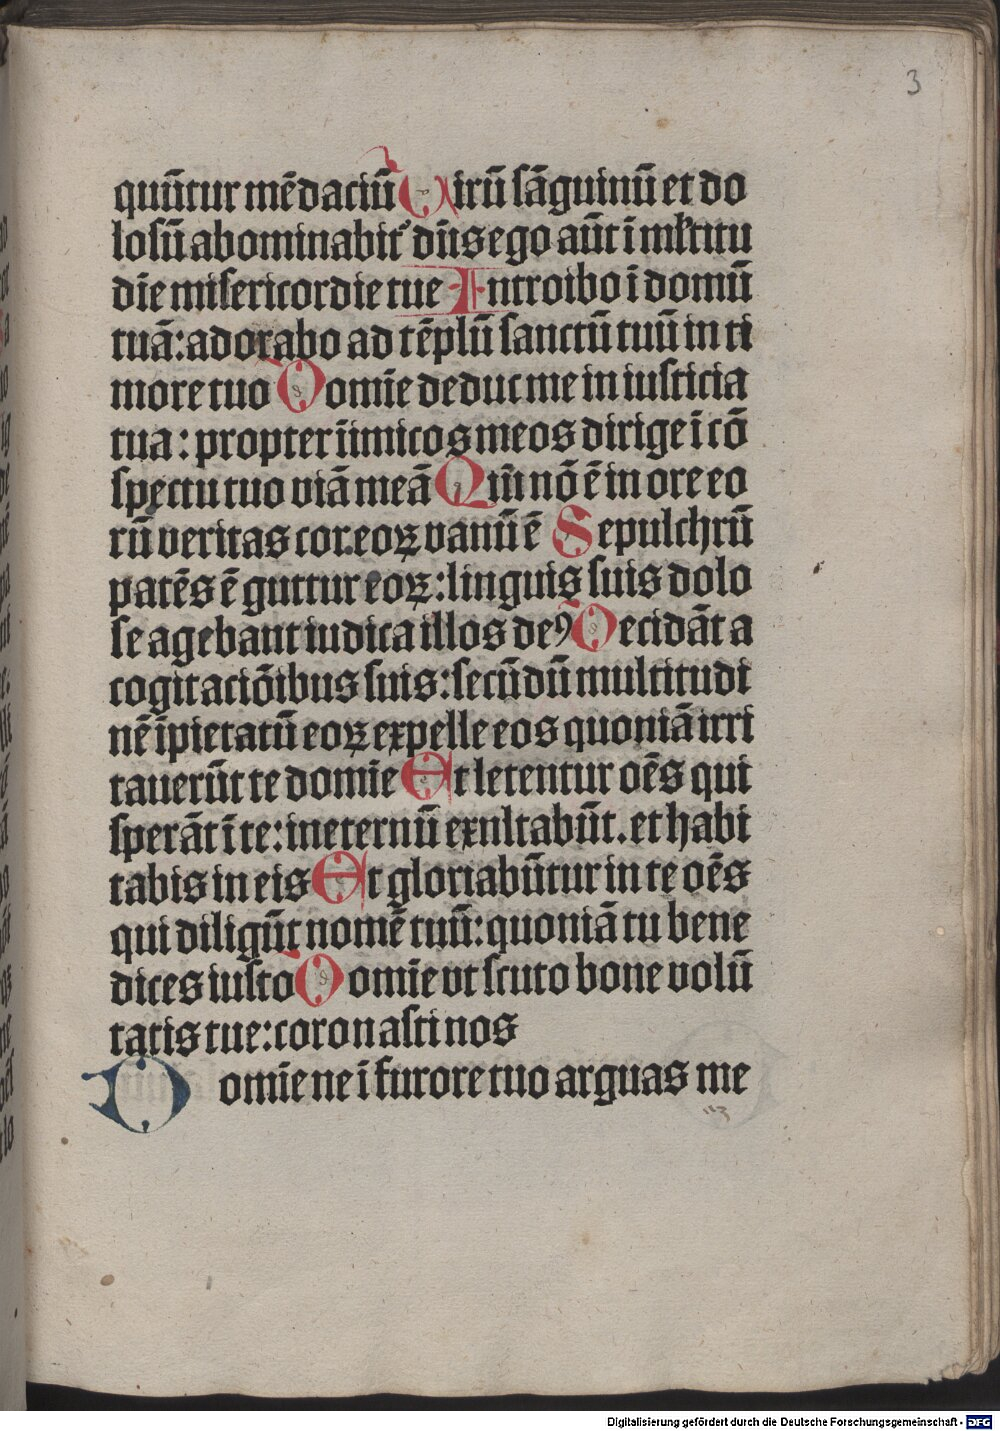 3
quūtur mēdaciū Uirū sāguinū et do
losū abominabit᷒ dn̄s ego aūt ī ml̄titu
dīe misericordie tue Introibo ī domū
tuā: adorabo ad tēplū sanctū tuū in ti
more tuo Domīe deduc me in iusticia
tua: propter īimicos meos dirige ī cō
spectu tuo viā meā Qm̄ nō ē in ore eo
rū veritas cor eoꝝ vanū ē Sepulchrū
patēs ē guttur eoꝝ: linguis suis dolo
se agebant iudica illos deꝰ Decidāt a
cogitaciōibus suis: secūdū multitudi
nē īpietatū eoꝝ expelle eos quoniā irri
tauerūt te domīe Et letentur oēs qui
sperāt ī te: in eternū exultabūt. et habi
tabis in eis Et gloriabūtur in te oēs
qui diligūt nomē tuū: quoniā tu bene
dices iusto Domīe vt scuto bone volū
tatis tue: coronasti nos
Domīe ne ī furore tuo arguas me
Digitalisierung gefördert durch die Deutsche Forschungsgemeinschaft - DFG